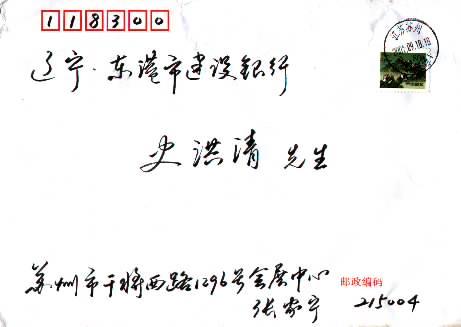 118300
辽宁·东港市建设銀行
史洪清 先生
苏州市干将西路1296号会展中心
张家宁
邮政编码 215004